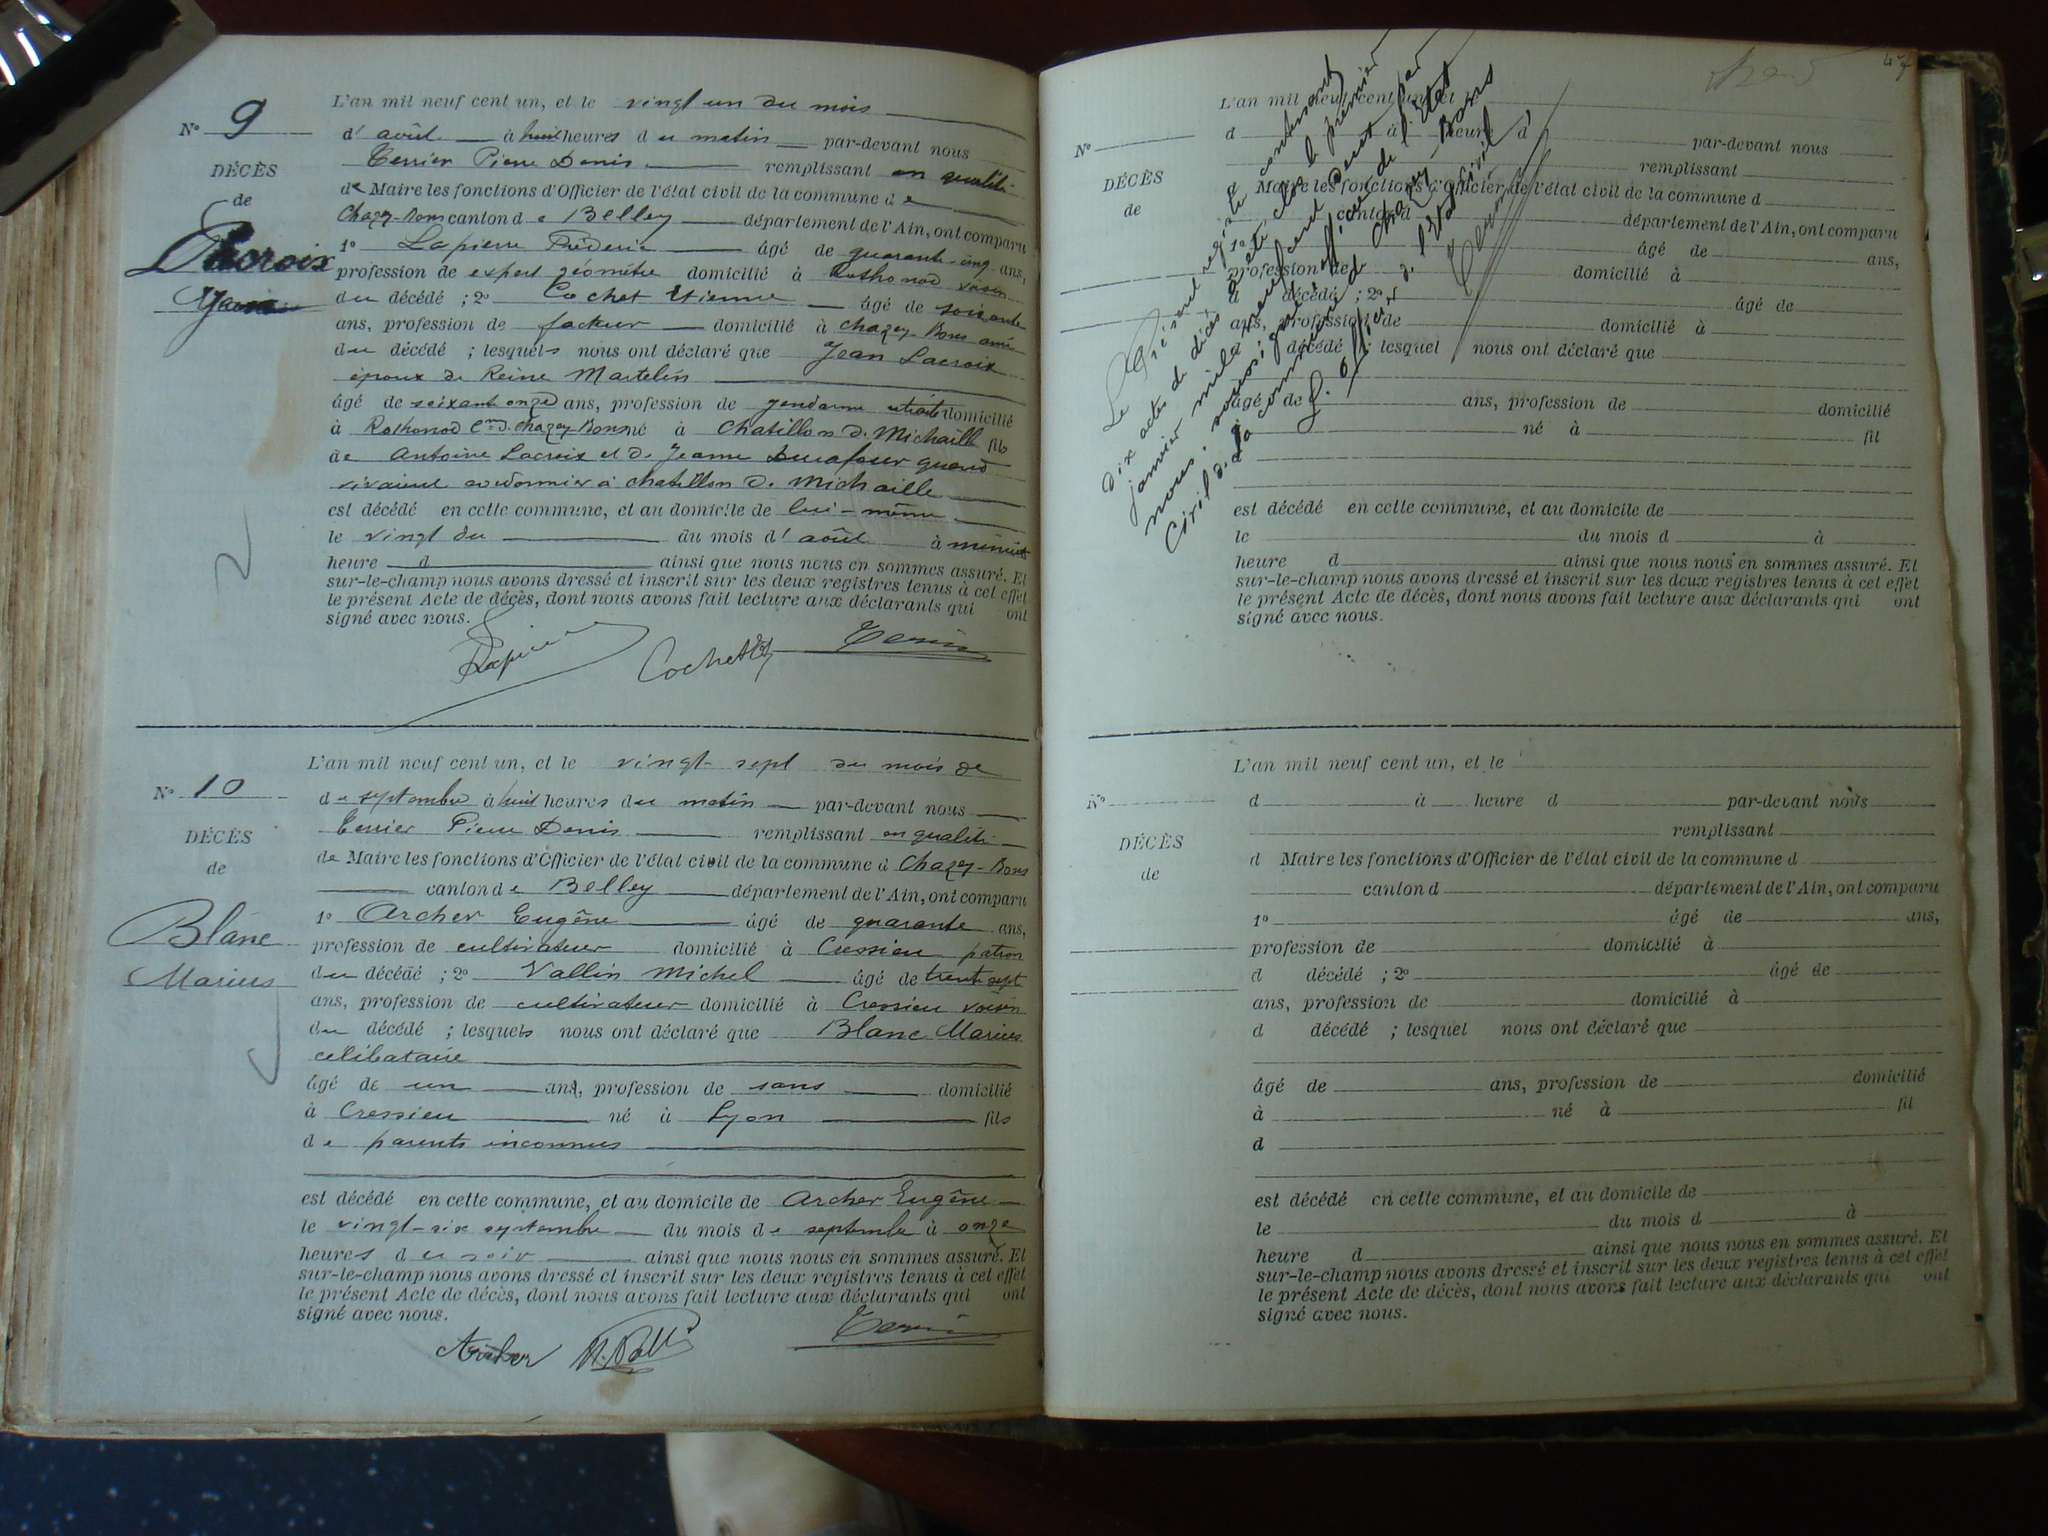 N° 9
DÉCÈS
de
Lacroix
Jean
L'an mil neuf cent un, et le vingt un du mois
d'août à huit heures du matin par-devant nous
Terrier Pierre Denis remplissant en qualité
de Maire les fonctions d'Officier de l'état civil de la commune de
Chazey-Bons canton de Belley département de l'Ain, ont comparu
1° Lapierre Frédéric âgé de quarante-cinq ans,
profession de expert géomètre domicilié à Rothonod voisin
du décédé ; 2° Cochet Etienne âgé de soixante
ans, profession de facteur domicilié à Chazey-Bons ami
du décédé ; lesquels nous ont déclaré que Jean Lacroix
époux de Reine Martelin
âgé de soixante onze ans, profession de gendarme retraité domicilié
à Rothonod Cne d. Chazey-Bons né à Chatillon d. Michaille fils
de Antoine Lacroix et d. Jeanne Ducafour quand
vivaient cordonnier à Chatillon d. Michaille
est décédé en cette commune, et au domicile de lui-même
le vingt du du mois d'août à minuit
heure d ainsi que nous nous en sommes assuré. Et
sur-le-champ nous avons dressé et inscrit sur les deux registres tenus à cet effet
le présent Acte de décès, dont nous avons fait lecture aux déclarants qui ont
signé avec nous.
Lapierre Cochet Terrier
N° 10
DÉCÈS
de
Blanc
Marius
L'an mil neuf cent un, et le vingt-sept du mois de
de septembre à huit heures du matin par-devant nous
Terrier Pierre Denis remplissant en qualité
de Maire les fonctions d'Officier de l'état civil de la commune d Chazey-Bons
canton de Belley département de l'Ain, ont comparu
1° Archer Eugène âgé de quarante ans,
profession de cultivateur domicilié à Cressieu patron
du décédé ; 2° Vallin Michel âgé de trente sept
ans, profession de cultivateur domicilié à Cressieu voisin
du décédé ; lesquels nous ont déclaré que Blanc Marius
célibataire
âgé de un ans, profession de sans domicilié
à Cressieu né à Lyon fils
de parents inconnus
est décédé en cette commune, et au domicile de Archer Eugène
le vingt-six septembre du mois de septembre à onze
heures du soir ainsi que nous nous en sommes assuré. Et
sur-le-champ nous avons dressé et inscrit sur les deux registres tenus à cet effet
le présent Acte de décès, dont nous avons fait lecture aux déclarants qui ont
signé avec nous.
Archer M. Vallin Terrier
47
Le Présent registre contenant
dix actes de décès a été clos le premier
janvier mille neuf cent deux par
nous soussigné officier de l'état
Civil de la commune de Chazey-Bons
L'officier de l'Etat civil
Terrier
N°
DÉCÈS
de
L'an mil neuf cent un, et le
d à heure d par-devant nous
remplissant
Maire les fonctions d'Officier de l'état civil de la commune d
canton d département de l'Ain, ont comparu
1° âgé de ans,
profession de domicilié à
d décédé ; 2° âgé de
ans, profession de domicilié à
d décédé ; lesquel nous ont déclaré que
âgé de ans, profession de domicilié
à né à fil
d
est décédé en cette commune, et au domicile de
le du mois d à
heure d ainsi que nous nous en sommes assuré. Et
sur-le-champ nous avons dressé et inscrit sur les deux registres tenus à cet effet
le présent Acte de décès, dont nous avons fait lecture aux déclarants qui ont
signé avec nous.
N°
DÉCÈS
de
L'an mil neuf cent un, et le
d à heure d par-devant nous
remplissant
d Maire les fonctions d'Officier de l'état civil de la commune d
canton d département de l'Ain, ont comparu
1° âgé de ans,
profession de domicilié à
d décédé ; 2° âgé de
ans, profession de domicilié à
d décédé ; lesquel nous ont déclaré que
âgé de ans, profession de domicilié
à né à fil
d
est décédé en cette commune, et au domicile de
le du mois d à
heure d ainsi que nous nous en sommes assuré. Et
sur-le-champ nous avons dressé et inscrit sur les deux registres tenus à cet effet
le présent Acte de décès, dont nous avons fait lecture aux déclarants qui ont
signé avec nous.